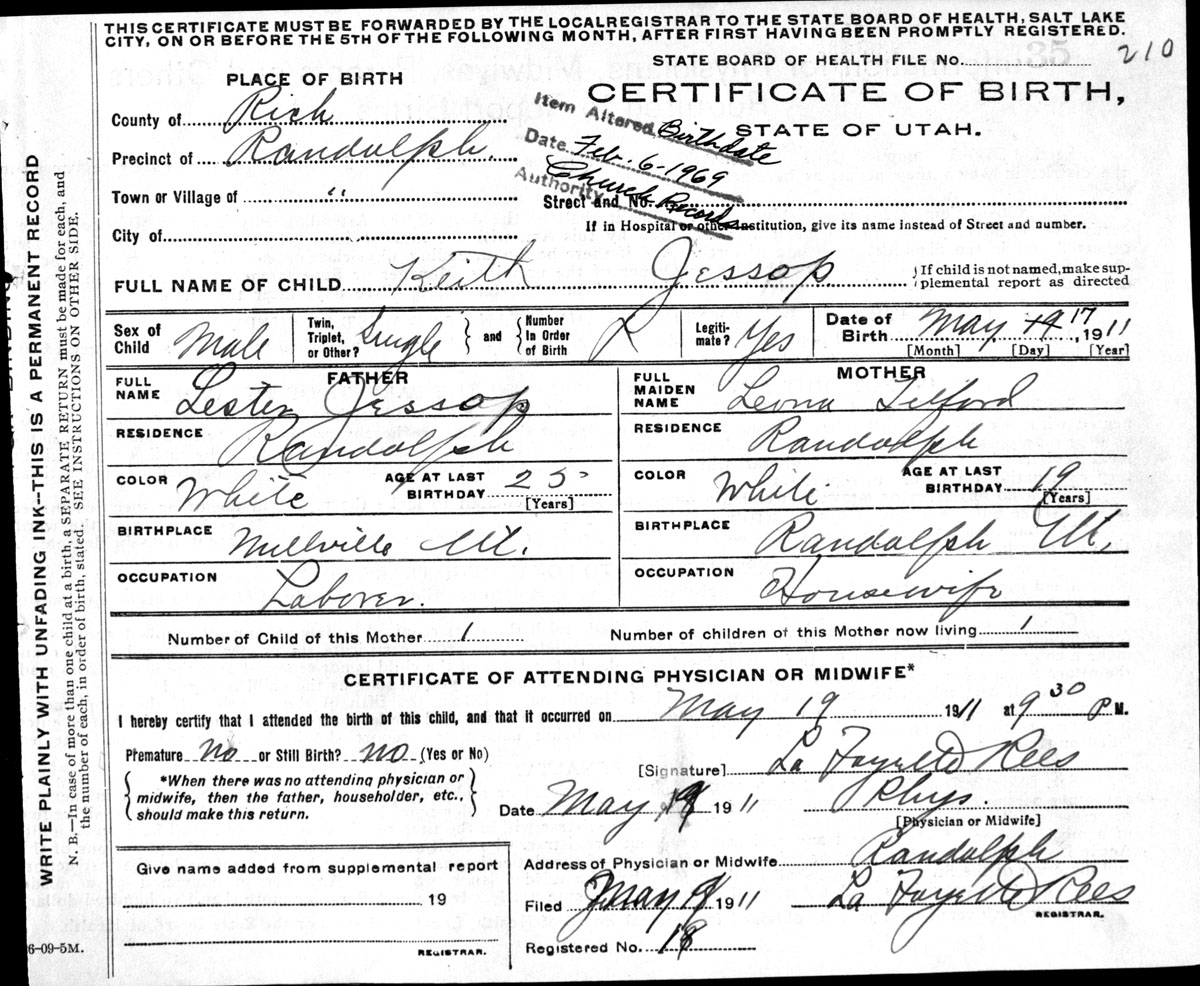 THIS CERTIFICATE MUST BE FORWARDED BY THE LOCAL REGISTRAR TO THE STATE BOARD OF HEALTH, SALT LAKE
CITY, ON OR BEFORE THE 5TH OF THE FOLLOWING MONTH, AFTER FIRST HAVING BEEN PROMPTLY REGISTERED.
STATE BOARD OF HEALTH FILE No. 210
PLACE OF BIRTH
CERTIFICATE OF BIRTH,
STATE OF UTAH.
County of Rich
Precinct of Randolph
Town or Village of "
City of
Item Altered Birthdate
Date Feb. 6-1969
Authority Church Records
Street and No.
If in Hospital or other Institution, give its name instead of Street and number.
FULL NAME OF CHILD Keith Jessop
{If child is not named, make sup-
plemental report as directed
Sex of Child Male
Twin, Triplet, or Other? Single } and { Number In Order of Birth
Legiti-mate? Yes
Date of Birth May 19 17, 1911
[Month] [Day] [Year]
FATHER
MOTHER
FULL NAME Lester Jessop
FULL MAIDEN NAME Leona Telford
RESIDENCE Randolph
RESIDENCE Randolph
COLOR White AGE AT LAST BIRTHDAY 25 [Years]
COLOR White AGE AT LAST BIRTHDAY 19 [Years]
BIRTHPLACE Millville Ut.
BIRTHPLACE Randolph Ut,
OCCUPATION Laborer.
OCCUPATION Housewife
Number of Child of this Mother 1
Number of children of this Mother now living 1
CERTIFICATE OF ATTENDING PHYSICIAN OR MIDWIFE*
I hereby certify that I attended the birth of this child, and that it occurred on May 19 1911 at 9 30 P M.
Premature No or Still Birth? No (Yes or No)
[Signature] La Fayette Rees
{ *When there was no attending physician or
midwife, then the father, householder, etc.,
should make this return. }
Date May 19 1911 Phys.
[Physician or Midwife]
Address of Physician or Midwife Randolph
Filed May 19 1911 La Fayette Rees
REGISTRAR.
Registered No. 18
Give name added from supplemental report
19
REGISTRAR.
6-09-5M.
WRITE PLAINLY WITH UNFADING INK--THIS IS A PERMANENT RECORD
N. B.—In case of more than one child at a birth, a SEPARATE RETURN must be made for each, and
the number of each, in order of birth, stated. SEE INSTRUCTIONS ON OTHER SIDE.